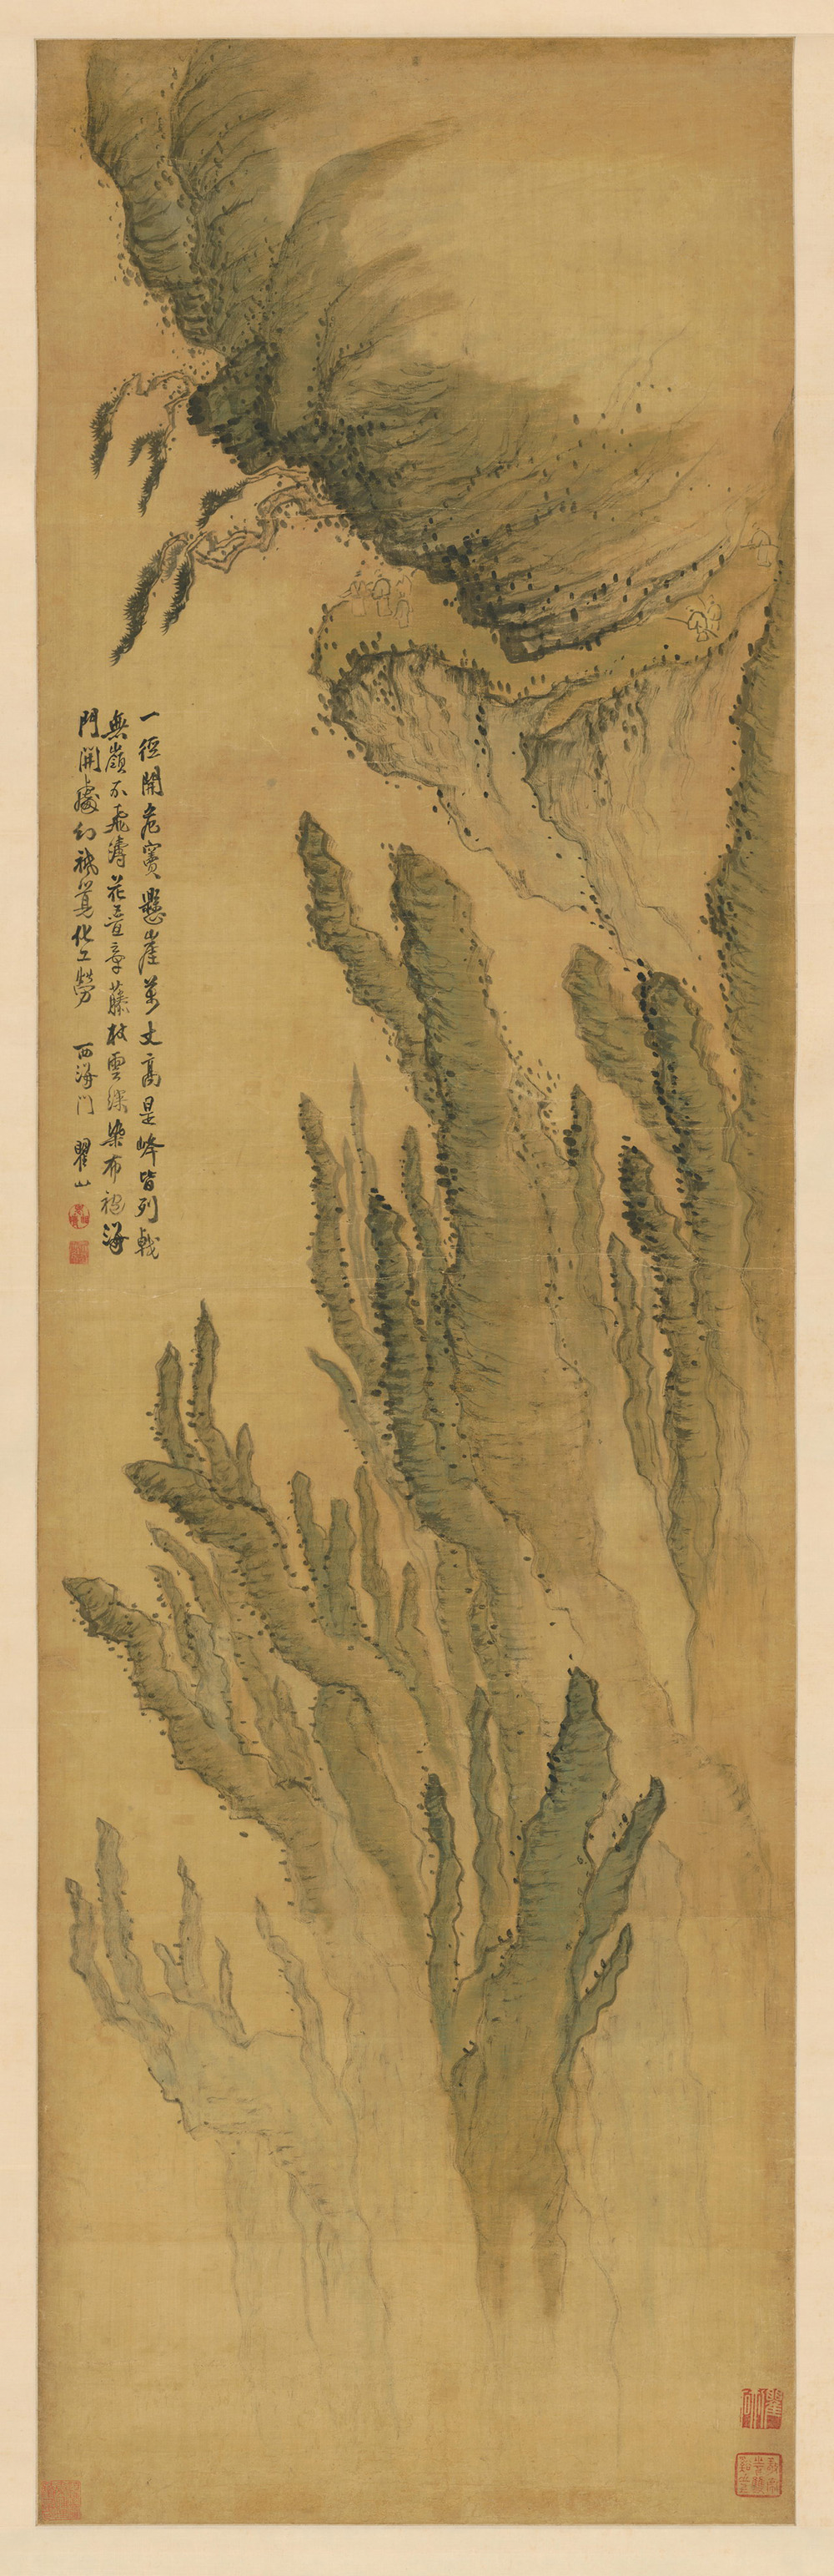 一徑開危竇懸崖萬丈高是峰皆列戟
無嶺不飛濤花藤杖雲深染布袍海
門開處幻覺化工勞 西海門 瞿山